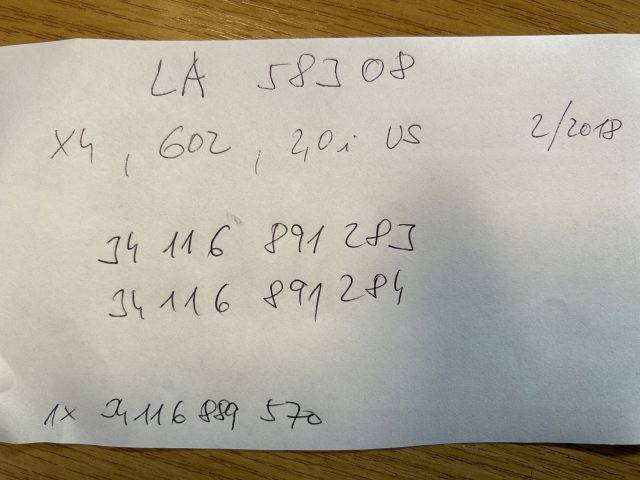 LA 58308
X4, G02, 2,0i US 2/2018
34 11 6 891 283
34 11 6 891 284
1x 34 11 6 889 570